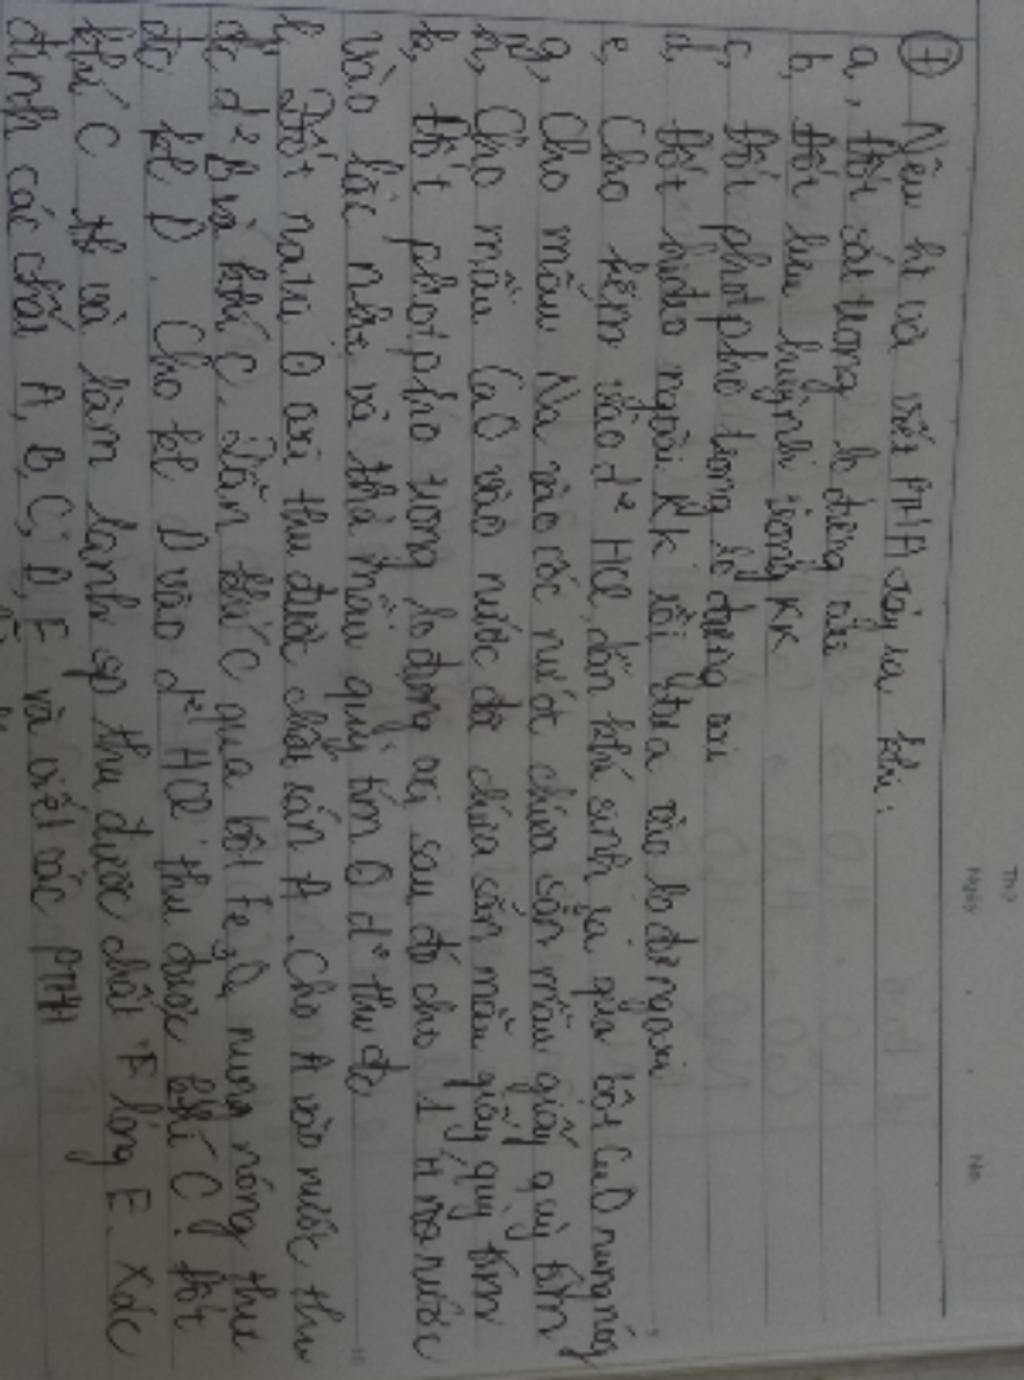 ⑦ Nêu ht và viết PTPƯ xảy ra khi:
a, Đốt sắt trong lọ đựng oxi
b, Đốt lưu huỳnh trong KK
c, Đốt photpho trong lọ đựng oxi
d, Đốt hidro ngoài KK rồi đưa vào lọ đựng oxi
e, Cho kẽm vào d² HCl, dẫn khí sinh ra qua bột CuO nung nóng
g, Cho mẩu Na vào cốc nước chứa sẵn mẩu giấy quỳ tím
h, Cho mẩu CaO vào nước đã chứa sẵn mẩu giấy quỳ tím
k, Đốt photpho trong lọ đựng oxi sau đó cho 1 ít nước
vào lắc nhẹ và thả mẩu quỳ tím d² thu đc
Đốt natri oxi thu được chất rắn A. Cho A vào nước thu
đc d² B và khí C. Dẫn khí C qua bột Fe₃O₄ nung nóng thu
đc kl D. Cho kl D vào d² HCl thu được khí C. Đốt
khí C và làm lạnh sp thu được chất lỏng E. Xác
định các chất A, B, C, D, E và viết các PTHH
Thứ
Ngày
No.